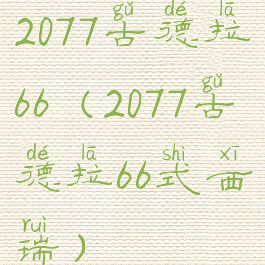 gǔ dé lā
2077古德拉
gǔ
66（2077古
dé lā shì xī
德拉66式西
ruì
瑞）